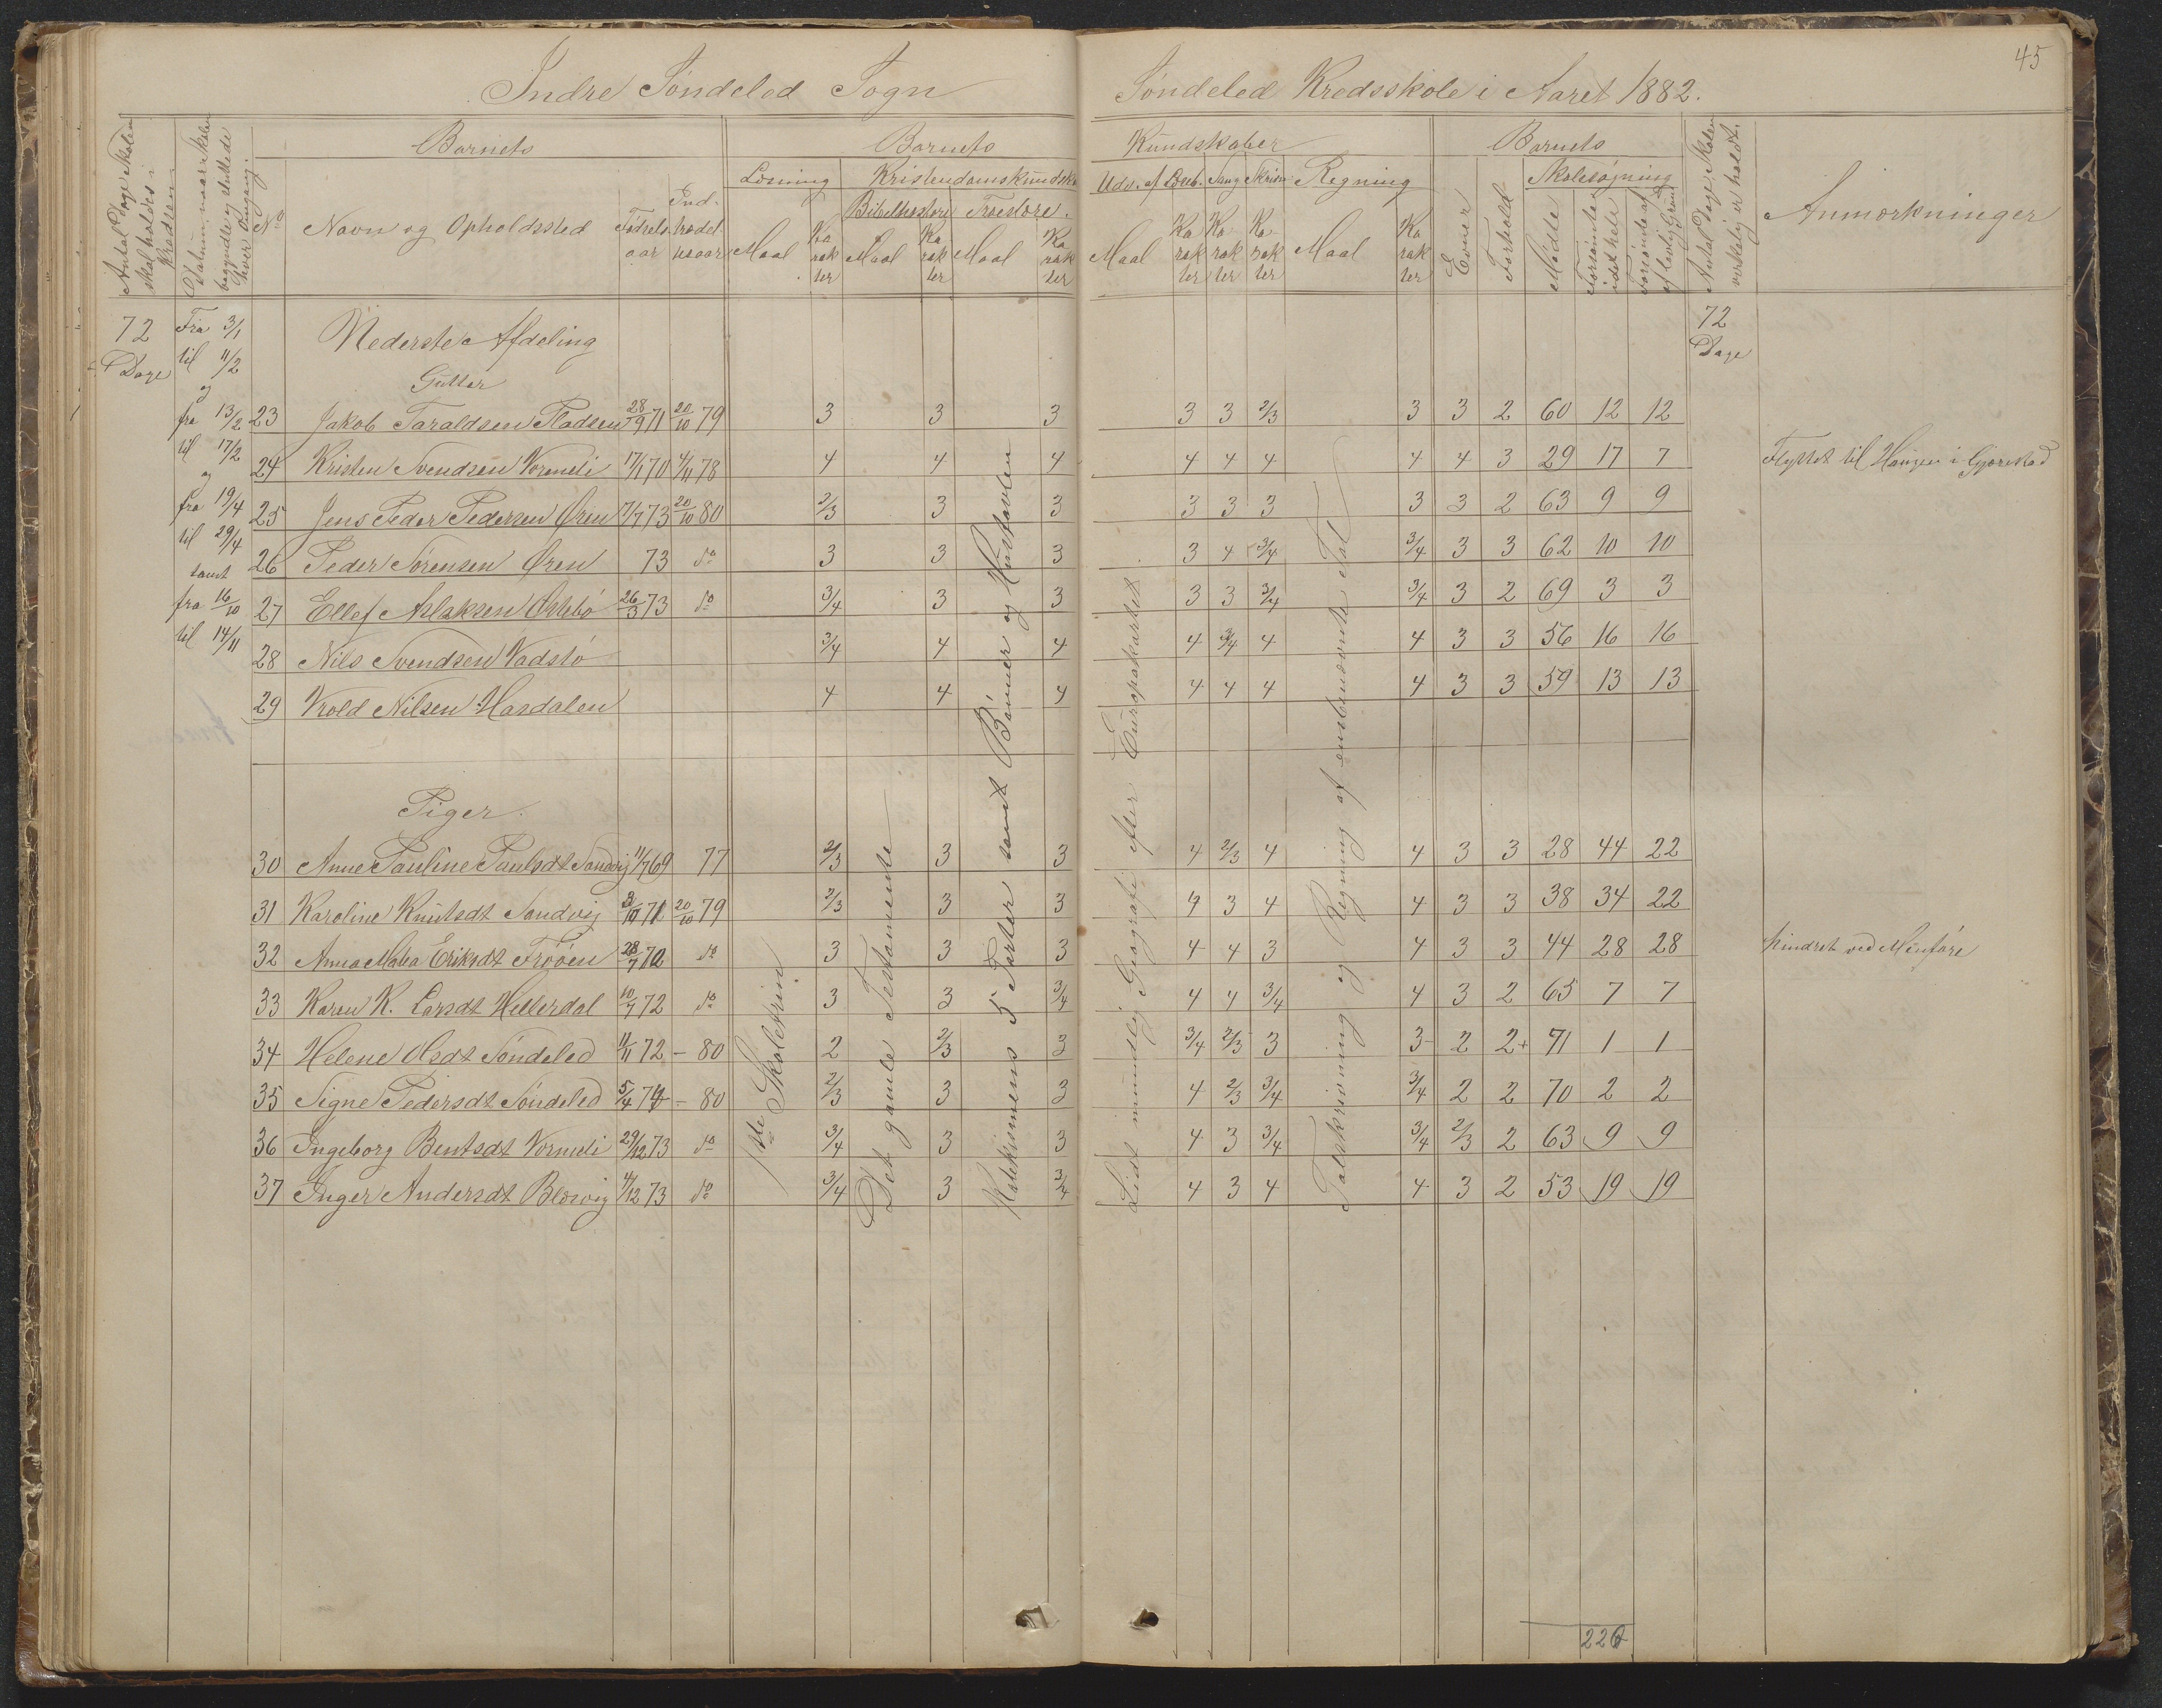 45
Indre Søndeled Sogn
Søndeled Kredsskole i Aaret 1882.
Antal Dage Skolen skal holdes i Kredsen
Datum, naar Skolen begyndte og sluttede hver Omgang.
Barnets
No
Navn og Opholdssted
Fødselsaar
Indtrædelsesaar
Barnets
Kundskaber
Læsning
Maal
Karakter
Kristendomskundsk
Bibelhistorie
Maal
Karakter
Troeslære.
Maal
Karakter
Udv. af Læseb.
Maal
Karakter
Sang
Karakter
Skrivn
Karakter
Regning
Maal
Karakter
Barnets
Evner
Forhold
Skolesøgning
Mødte
Forsømte i det hele
Forsømte af lovlig Grund
Antal Dage Skolen virkelig er holdt.
Anmærkninger
72 Dage
Fra 3/1
til 11/2
og
fra 13/2
til 17/2
og
fra 19/4
til 29/4
samt
fra 16/10
til 14/11
72 Dage
Nederste Afdeling
Gutter
23 Jakob Taraldsen Pladsen 28/9 71 20/10 79 3 3 3 3 3 2/3 3 3 2 60 12 12
24 Kristen Svendsen Vormeli 17/1 70 4/11 78 4 4 4 4 4 4 4 4 3 29 17 7 Flyttet til Haugen i Gjerestad
25 Jens Peder Pedersen Øren 17/7 73 20/10 80 2/3 3 3 3 3 3 3 3 2 63 9 9
26 Peder Sørensen Øren 73 do 3 3 3 3 4 3/4 3/4 3 3 62 10 10
27 Ellef Aslaksen Østebø 26/3 73 do 3/4 3 3 3 3 3/4 3/4 3 2 69 3 3
28 Nils Svendsen Vadstø 3/4 4 4 4 3/4 4 4 3 3 56 16 16
29 Krold Nilsen Hasdalen 4 4 4 4 4 4 4 3 3 59 13 13
Piger.
30 Anne Pauline Paulsdt Sandvig 11/7 69 77 2/3 3 3 4 2/3 4 4 3 3 28 44 22
31 Karoline Knutsdt Sandvig 3/10 71 20/10 79 2/3 3 3 4 3 4 4 3 3 38 34 22
32 Anna Malea Eriksdt Frøøen 28/7 72 do 3 3 3 4 4 3 4 3 3 44 28 28 hindret ved Menføre
33 Karen K. Larsdt Hellerdal 10/7 72 do 3 3 3/4 4 4 3/4 4 3 2 65 7 7
34 Helene Olsdt Søndeled 11/11 72 - 80 2 2/3 3 3/4 2/3 3 3 2 2+ 71 1 1
35 Signe Pedersdt Søndeled 5/4 74 - 80 2/3 3 3 4 2/3 3/4 3/4 2 2 70 2 2
36 Ingeborg Bentsdt Vormeli 29/12 73 do 3/4 3 3 4 3 3/4 3/4 2/3 2 63 9 9
37 Inger Andersdt Blesvig 4/12 73 do 3/4 3 3/4 4 3 4 4 3 2 53 19 19
1ste Skoletrin
Det gamle Testamente
Katekismens 5 Parter samt Bønner og Hustavlen
Lidt mundlig Geografi efter Europakartet
Talskrivning og Regning af ensbenævnte Tal
226